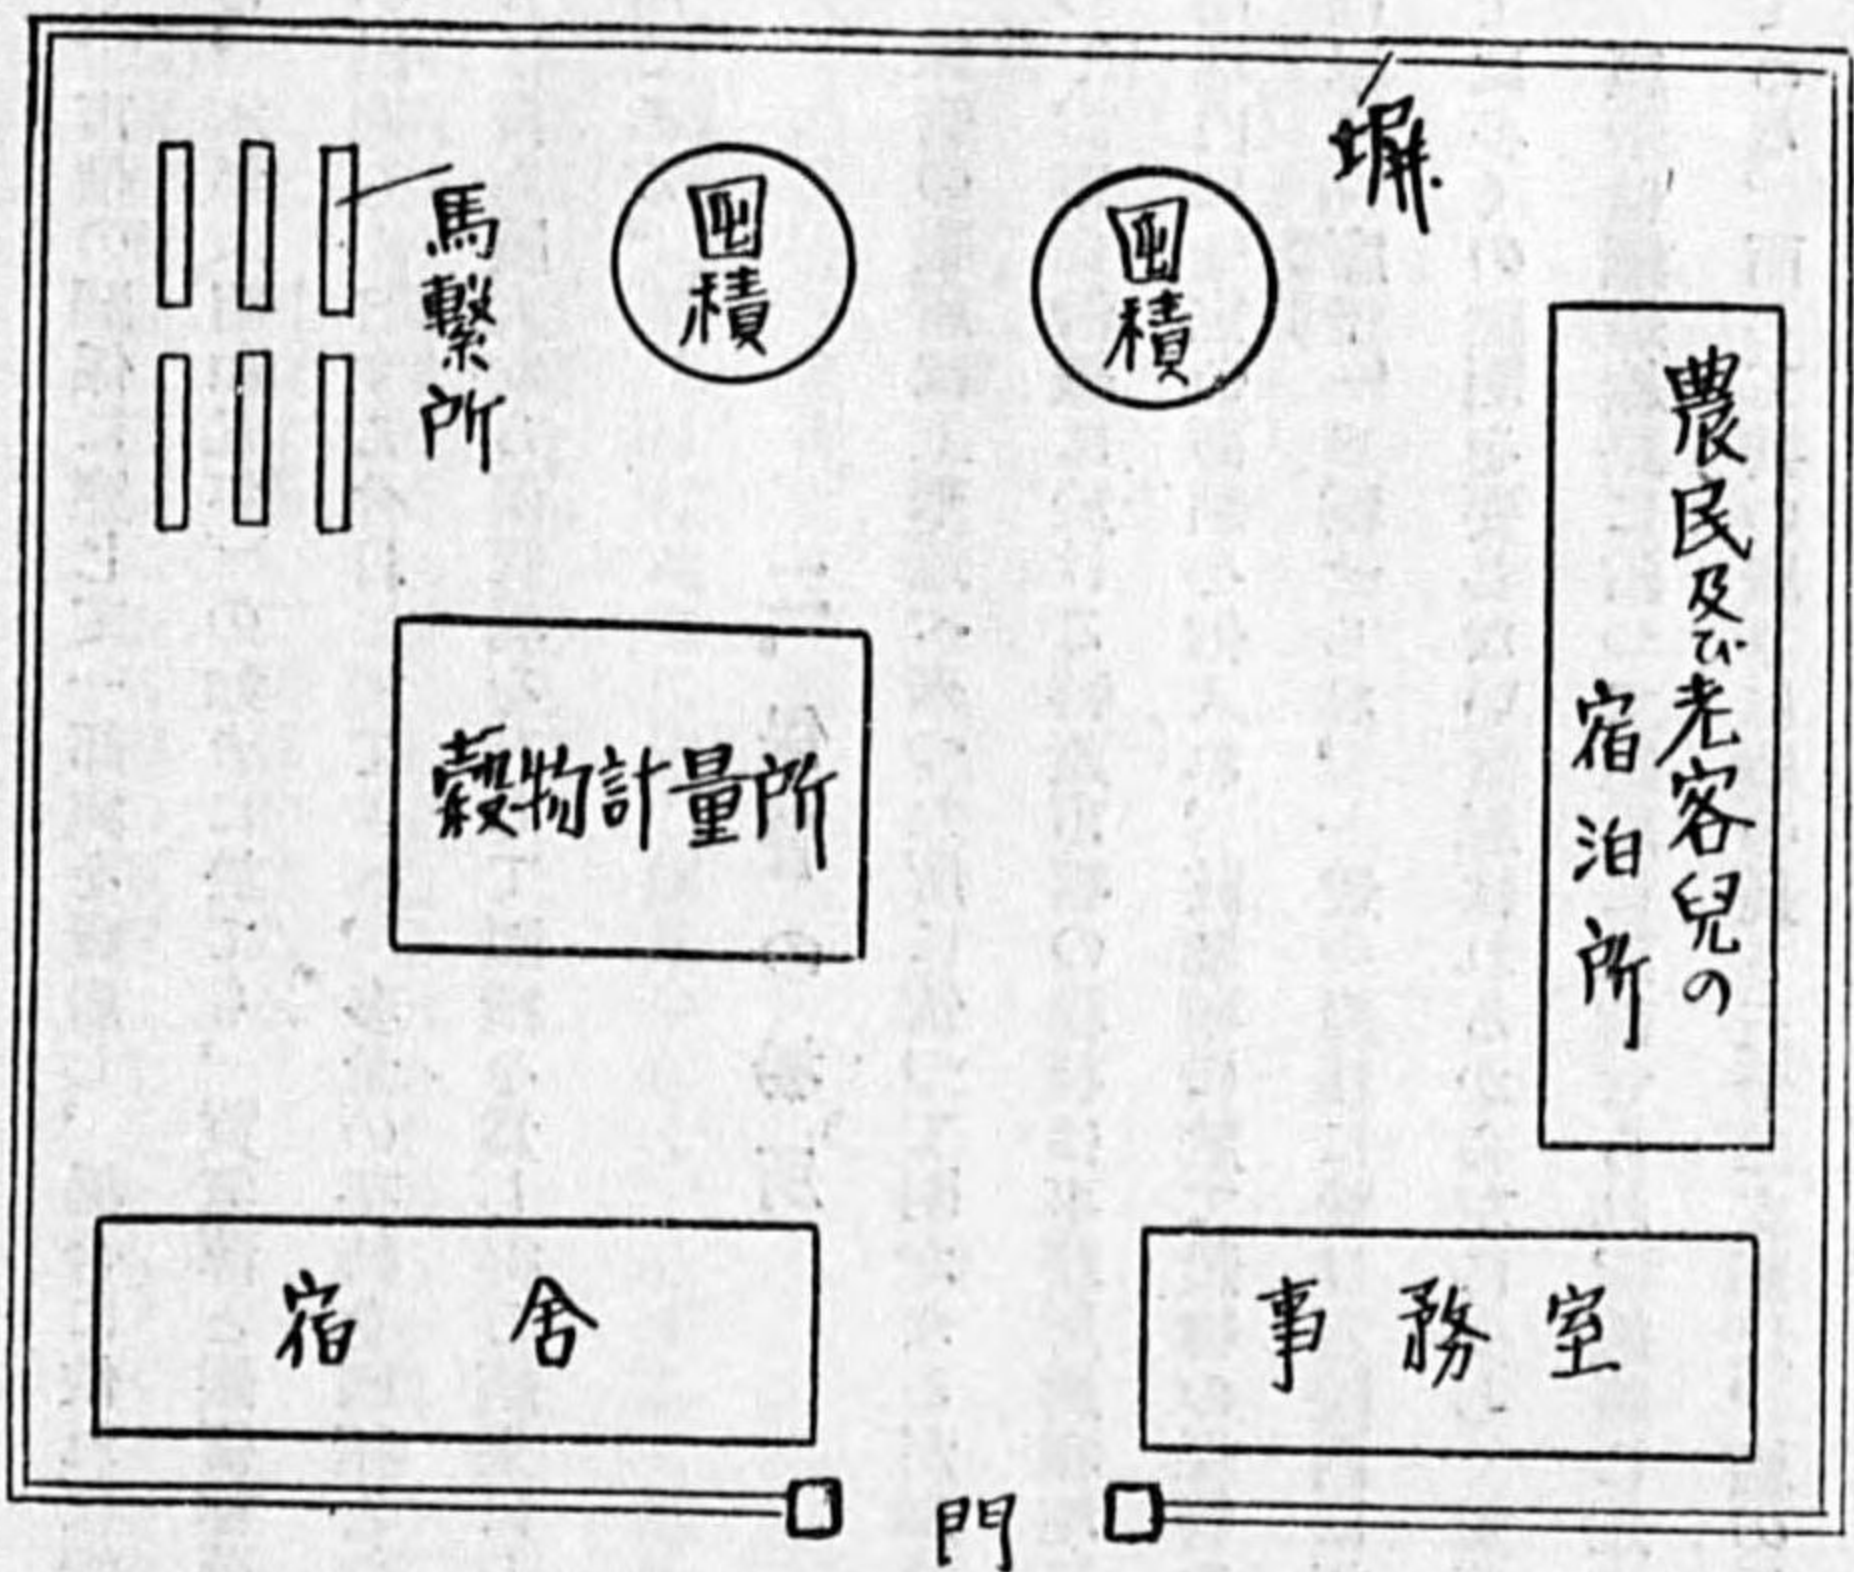 塀
馬繋所
囤積
囤積
農民及び老客兒の
宿泊所
穀物計量所
宿舎
事務室
門